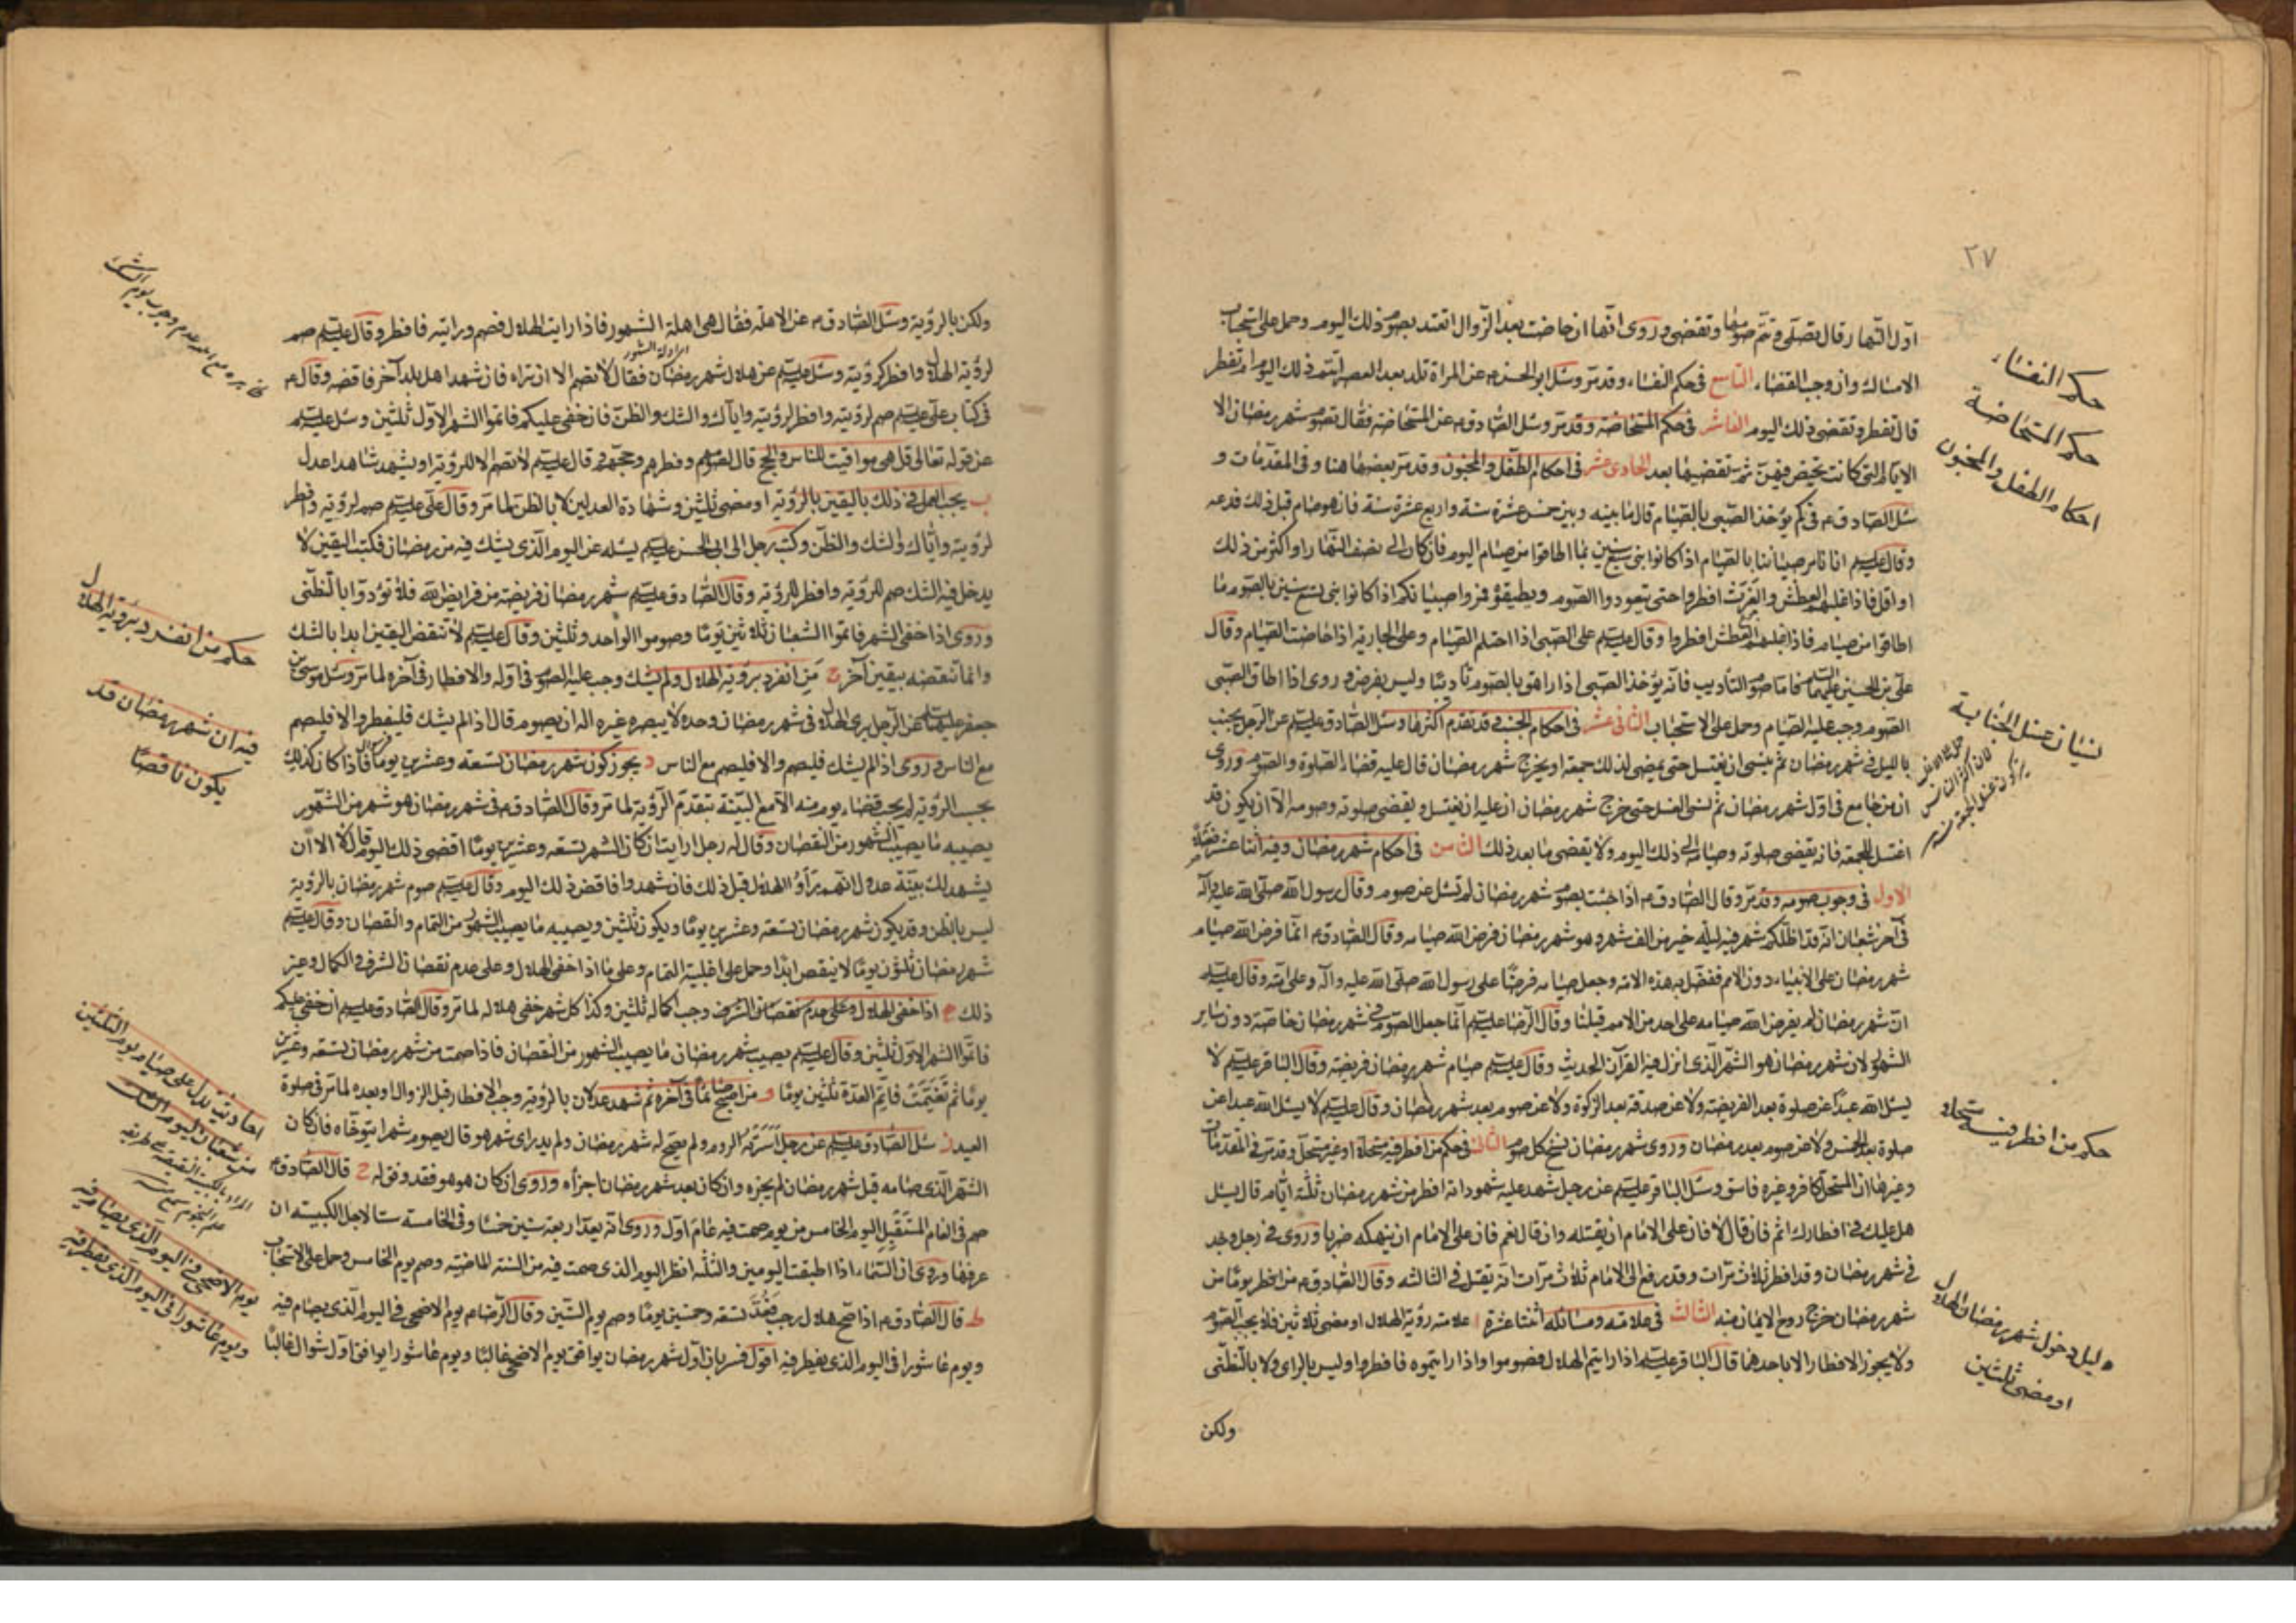 ٢٧
اول النهار قال تصلى وتتم صومها وتقضى وروى انها ان حاضت بعد الزوال تعتد بصوم ذلك اليوم وحمل على استحباب
الامساك وان وجب القضاء التاسع فى حكم النفساء وقد مر وسئل ابو الحسن ع عن المراة تلد بعد العصر اتتم ذلك اليوم ام تفطر
قال تفطر وتقضى ذلك اليوم العاشر فى حكم المستحاضة وقد مر وسئل الصادق ع عن المستحاضة فقال تصوم شهر رمضان الا
الايام التى كانت تحيض فيهن ثم تقضيها بعد الحادى عشر فى احكام الطفل والمجنون وقد مر بعضها هنا وفى المقدمات و
سئل الصادق ع فى كم يؤخذ الصبى بالصيام قال ما بينه وبين خمس عشرة سنة واربع عشرة سنة فان هو صام قبل ذلك فدعه
وقال عليه السلم انا نامر صبياننا بالصيام اذا كانوا بنى سبع سنين بما اطاقوا من صيام اليوم فان كان الى نصف النهار او اكثر من ذلك
او اقل فاذا غلبهم العطش والغرث افطروا حتى يتعودوا الصوم ويطيقوه فمروا صبيانكم اذا كانوا بنى تسع سنين بالصوم ما
اطاقوا من صيام فاذا غلبهم العطش افطروا وقال عليه السلم على الصبى اذا احتلم الصيام وعلى الجارية اذا حاضت الصيام وقال
على بن الحسين عليهما السلم فاما صوم التاديب فانه يؤخذ الصبى اذا راهق بالصوم تاديبا وليس بفرض وروى اذا اطاق الصبى
الصوم وجب عليه الصيام وحمل على الاستحباب الثانى عشر فى احكام الجنب وقد تقدم اكثرها وسئل الصادق عليه السلم عن الرجل يجنب
بالليل فى شهر رمضان ثم ينسى ان يغتسل حتى يمضى لذلك جمعة او يخرج شهر رمضان قال عليه قضاء الصلوة والصوم وروى
ان من جامع فى اول شهر رمضان ثم نسى الغسل حتى خرج شهر رمضان ان عليه ان يغتسل ويقضى صلوته وصومه الا ان يكون قد
اغتسل للجمعة فانه يقضى صلوته وصيامه الى ذلك اليوم ولا يقضى ما بعد ذلك الثامن فى احكام شهر رمضان وفيه اثنا عشر فصلا
الاول فى وجوب صومه وقد مر وقال الصادق ع اذا جئت بصوم شهر رمضان لم تسئل عن صوم وقال رسول الله صلى الله عليه واله
فى آخر شعبان انه قد اظلكم شهر فيه ليلة خير من الف شهر وهو شهر رمضان فرض الله صيامه وقال الصادق ع انما فرض الله صيام
شهر رمضان على الانبياء دون الامم ففضل به هذه الامة وجعل صيامه فرضا على رسول الله صلى الله عليه واله وعلى امته وقال عليه السلم
ان شهر رمضان لم يفرض الله صيامه على احد من الامم قبلنا وقال الرضا عليه السلم انما جعل الصوم فى شهر رمضان خاصة دون ساير
الشهور لان شهر رمضان هو الشهر الذى انزل فيه القرآن الحديث وقال عليه السلم صيام شهر رمضان فريضة وقال الباقر عليه السلم لا
يسئل الله عبدا عن صلوة بعد الفريضة ولا عن صدقة بعد الزكوة ولا عن صوم بعد شهر رمضان وقال عليه السلم لا يسئل الله عبدا عن
صلوة بعد الخمس ولا عن صوم بعد رمضان وروى شهر رمضان نسخ كل صوم الثانى فى حكم من افطر فيه مستحلا او غير مستحل وقد مر فى المقدمات
وغيرها ان المستحل كافر وغيره فاسق وسئل الباقر عليه السلم عن رجل شهد عليه شهود انه افطر من شهر رمضان ثلثة ايام قال يسئل
هل عليك فى افطارك اثم فان قال لا فان على الامام ان يقتله وان قال نعم فان على الامام ان ينهكه ضربا وروى فى رجل وجد
فى شهر رمضان وقد افطر ثلاث مرات وقد رفع الى الامام ثلاث مرات انه يقتل فى الثالثة وقال الصادق ع من افطر يوما من
شهر رمضان خرج روح الايمان منه الثالث فى علامته ومسائله اثنتا عشرة ا علامته رؤية الهلال او مضى ثلاثين فلا يجب الصوم
ولا يجوز الافطار الا باحدهما قال الباقر عليه السلم اذا رايتم الهلال فصوموا واذا رايتموه فافطروا وليس بالراى ولا بالتظنى
ولكن
حكم النفساء
حكم المستحاضة
احكام الطفل والمجنون
نسيان غسل الجنابة
حكم من افطر فيه مستحلا
دليل دخول شهر رمضان الهلال
او مضى ثلثين
ولكن بالرؤية وسئل الصادق ع عن الاهلة فقال هى اهلة الشهور فاذا رايت الهلال فصم واذا رايته فافطر وقال عليه السلم صم
لرؤية الهلال وافطر لرؤيته وسئل عليه السلم عن هلال شهر رمضان فقال لا تصم الا ان تراه فان شهد اهل بلد آخر فاقضه وقال ع
فى كتاب على عليه السلم صم لرؤيته وافطر لرؤيته واياك والشك والظن فان خفى عليكم فاتموا الشهر الاول ثلثين وسئل عليه السلم
عن قوله تعالى قل هى مواقيت للناس والحج قال لصومهم وفطرهم وحجهم وقال عليه السلم لا تصم الا للرؤية او يشهد شاهدا عدل
ب يجب العمل فى ذلك باليقين بالرؤية او مضى ثلثين وشهادة العدلين لا بالظن لما مر وقال على عليه السلم صم لرؤيته وافطر
لرؤيته واياك والشك والظن وكتب رجل الى ابى الحسن عليه السلم يسئله عن اليوم الذى يشك فيه من رمضان فكتب اليقين لا
يدخل فيه الشك صم للرؤية وافطر للرؤية وقال الصادق عليه السلم شهر رمضان فريضة من فرايض الله فلا تؤدوا بالتظنى
وروى اذا خفى الشهر فاتموا الشعبان ثلاثين يوما وصوموا الواحد وثلثين وقال عليه السلم لا تنقض اليقين ابدا بالشك
وانما تنقضه بيقين آخر ج من انفرد برؤية الهلال ولم يشك وجب عليه الصوم فى اوله والافطار فى آخره لما مر وسئل موسى بن
جعفر عليهما السلم عن الرجل يرى الهلال فى شهر رمضان وحده لا يبصره غيره اله ان يصوم قال اذا لم يشك فليفطر والا فليصم
مع الناس وروى اذا لم يشك فليصم والا فليصم مع الناس د يجوز كون شهر رمضان تسعة وعشرين يوما فاذا كان كذلك
بحسب الرؤية لم يجب قضاء يوم منه الا مع البينة بتقدم الرؤية لما مر وقال الصادق ع فى شهر رمضان هو شهر من الشهور
يصيبه ما يصيب الشهور من النقصان وقال له رجل ارايت ان كان الشهر تسعة وعشرين يوما اقضى ذلك اليوم قال لا الا ان
يشهد لك بينة عدول انهم راوا الهلال قبل ذلك فان شهدوا فاقض ذلك اليوم وقال عليه السلم صوم شهر رمضان بالرؤية
ليس بالظن وقد يكون شهر رمضان تسعة وعشرين يوما ويكون ثلثين ويصيبه ما يصيب الشهور من التمام والنقصان وقال عليه السلم
شهر رمضان ثلثون يوما لا ينقص ابدا وحمل على اغلبية التمام وعلى ما اذا خفى الهلال وعلى عدم نقصان الشرف والكمال وغير
ذلك ه اذا خفى الهلال وعلى عدم نقصان الشرف وجب اكماله ثلثين وكذا كل شهر خفى هلاله لما مر وقال الصادق عليه السلم ان خفى عليكم
فاتموا الشهر الاول ثلثين وقال عليه السلم يصيب شهر رمضان ما يصيب الشهور من النقصان فاذا صمت من شهر رمضان تسعة وعشرين
يوما ثم تغيمت فاتم العدة ثلثين يوما و من اصبح صائما فى آخره ثم شهد عدلان بالرؤية وجب الافطار قبل الزوال او بعده لما مر فى صلوة
العيد ز سئل الصادق عليه السلم عن رجل اسرته الروم ولم يصح له شهر رمضان ولم يدر اى شهر هو قال يصوم شهرا يتوخاه فان كان
الشهر الذى صامه قبل شهر رمضان لم يجزه وان كان بعد شهر رمضان اجزأه وروى ان كان هو هو فقد وفق له ح قال الصادق ع
صم فى العام المستقبل اليوم الخامس من يوم صمت فيه عام اول وروى انه يعد اربعة سنين خمسا وفى الخامسة ستا لاجل الكبيسة ان
عرفها وروى ان السماء اذا اطبقت اليومين والثلثة انظر اليوم الذى صمت فيه من السنة الماضية وصم يوم الخامس وحمل على الاستحباب
ط قال الصادق ع اذا صح هلال رجب فعد تسعة وخمسين يوما وصم يوم الستين وقال الرضا ع يوم الاضحى فى اليوم الذى يصام فيه
ويوم عاشورا فى اليوم الذى يفطر فيه اقول فسر بان اول شهر رمضان يوافق يوم الاضحى غالبا ويوم عاشورا يوافق اول شوال غالبا
حكم من انفرد برؤية الهلال
فيه ان شهر رمضان قد
يكون ناقصا
احاديث تدل على صيام يوم الثلثين
من شعبان ليوم الشك
يوم الاضحى فى اليوم الذى يصام فيه
ويوم عاشورا فى اليوم الذى يفطر فيه